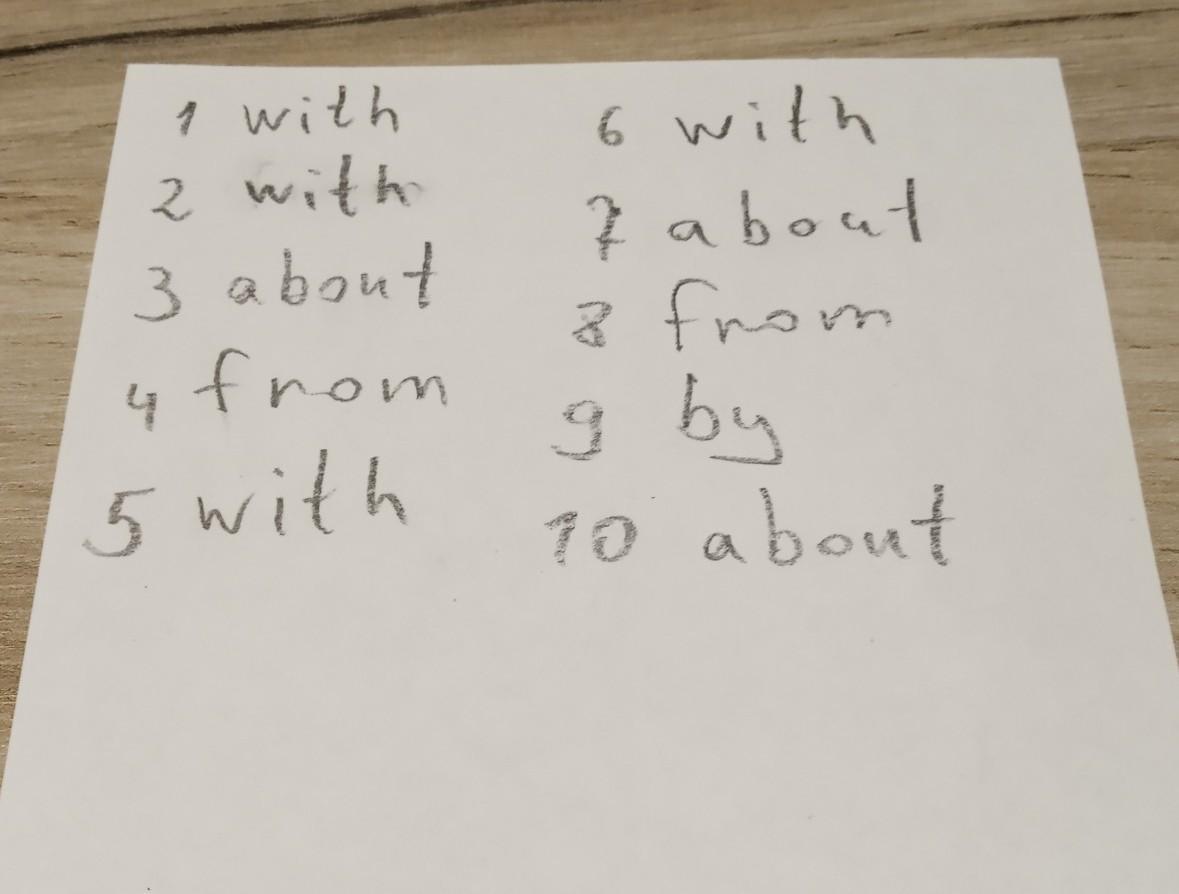 1 with
2 with
3 about
4 from
5 with
6 with
7 about
8 from
9 by
10 about